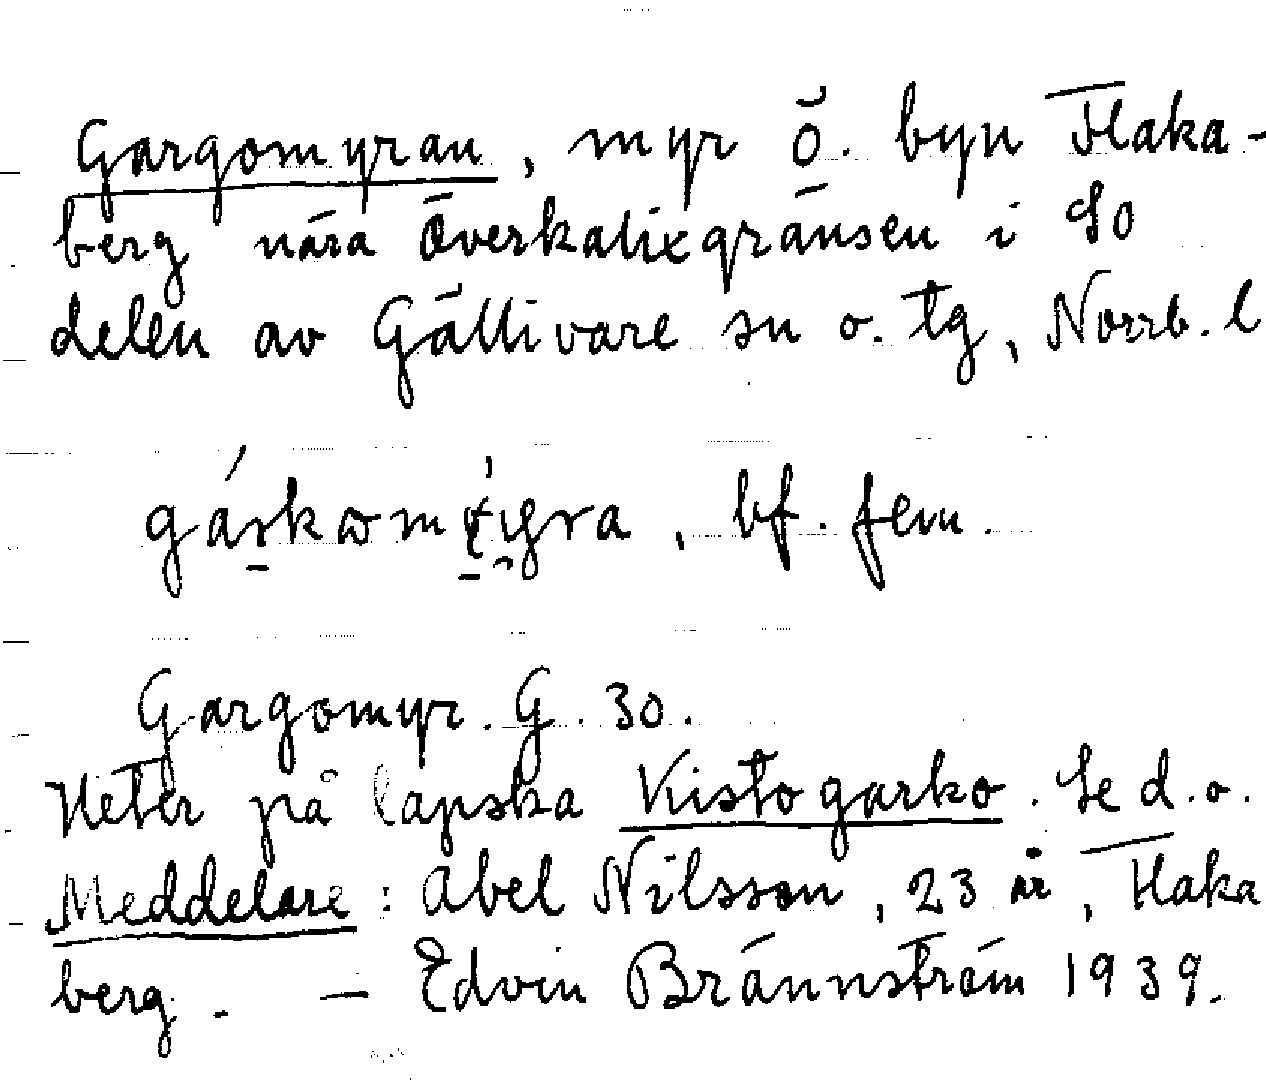 Gargomyran, myr ö. byn Flaka-
berg nära Överkalixgränsen i SO
delen av Gällivare sn o. tg, Norrb. l
bf. fem.
Gargomyr. G. 30.
Heter på lapska Kistogarko. Se d. o.
Meddelare: Abel Nilsson, 23 år, Flaka
berg. — Edvin Brännström 1939.